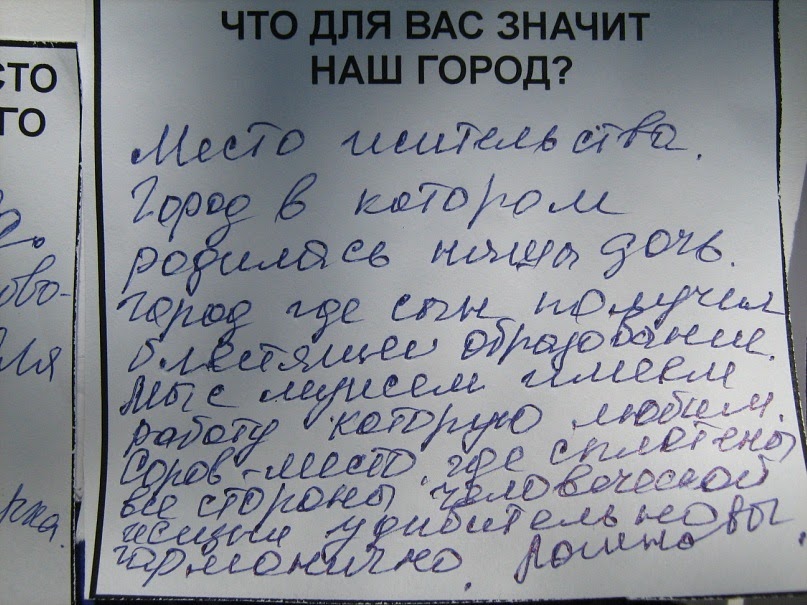 СТО
ГО
ово-
ля
рка.
ЧТО ДЛЯ ВАС ЗНАЧИТ
НАШ ГОРОД?
Место жительства.
Город в котором
родилась наша дочь.
Город где сын получил
блестящее образование.
Мы с мужем имеем
работу которую любим.
Саров - место, где сплетены
все стороны человеческой
жизни удивительно
гармонично. Ромновы.